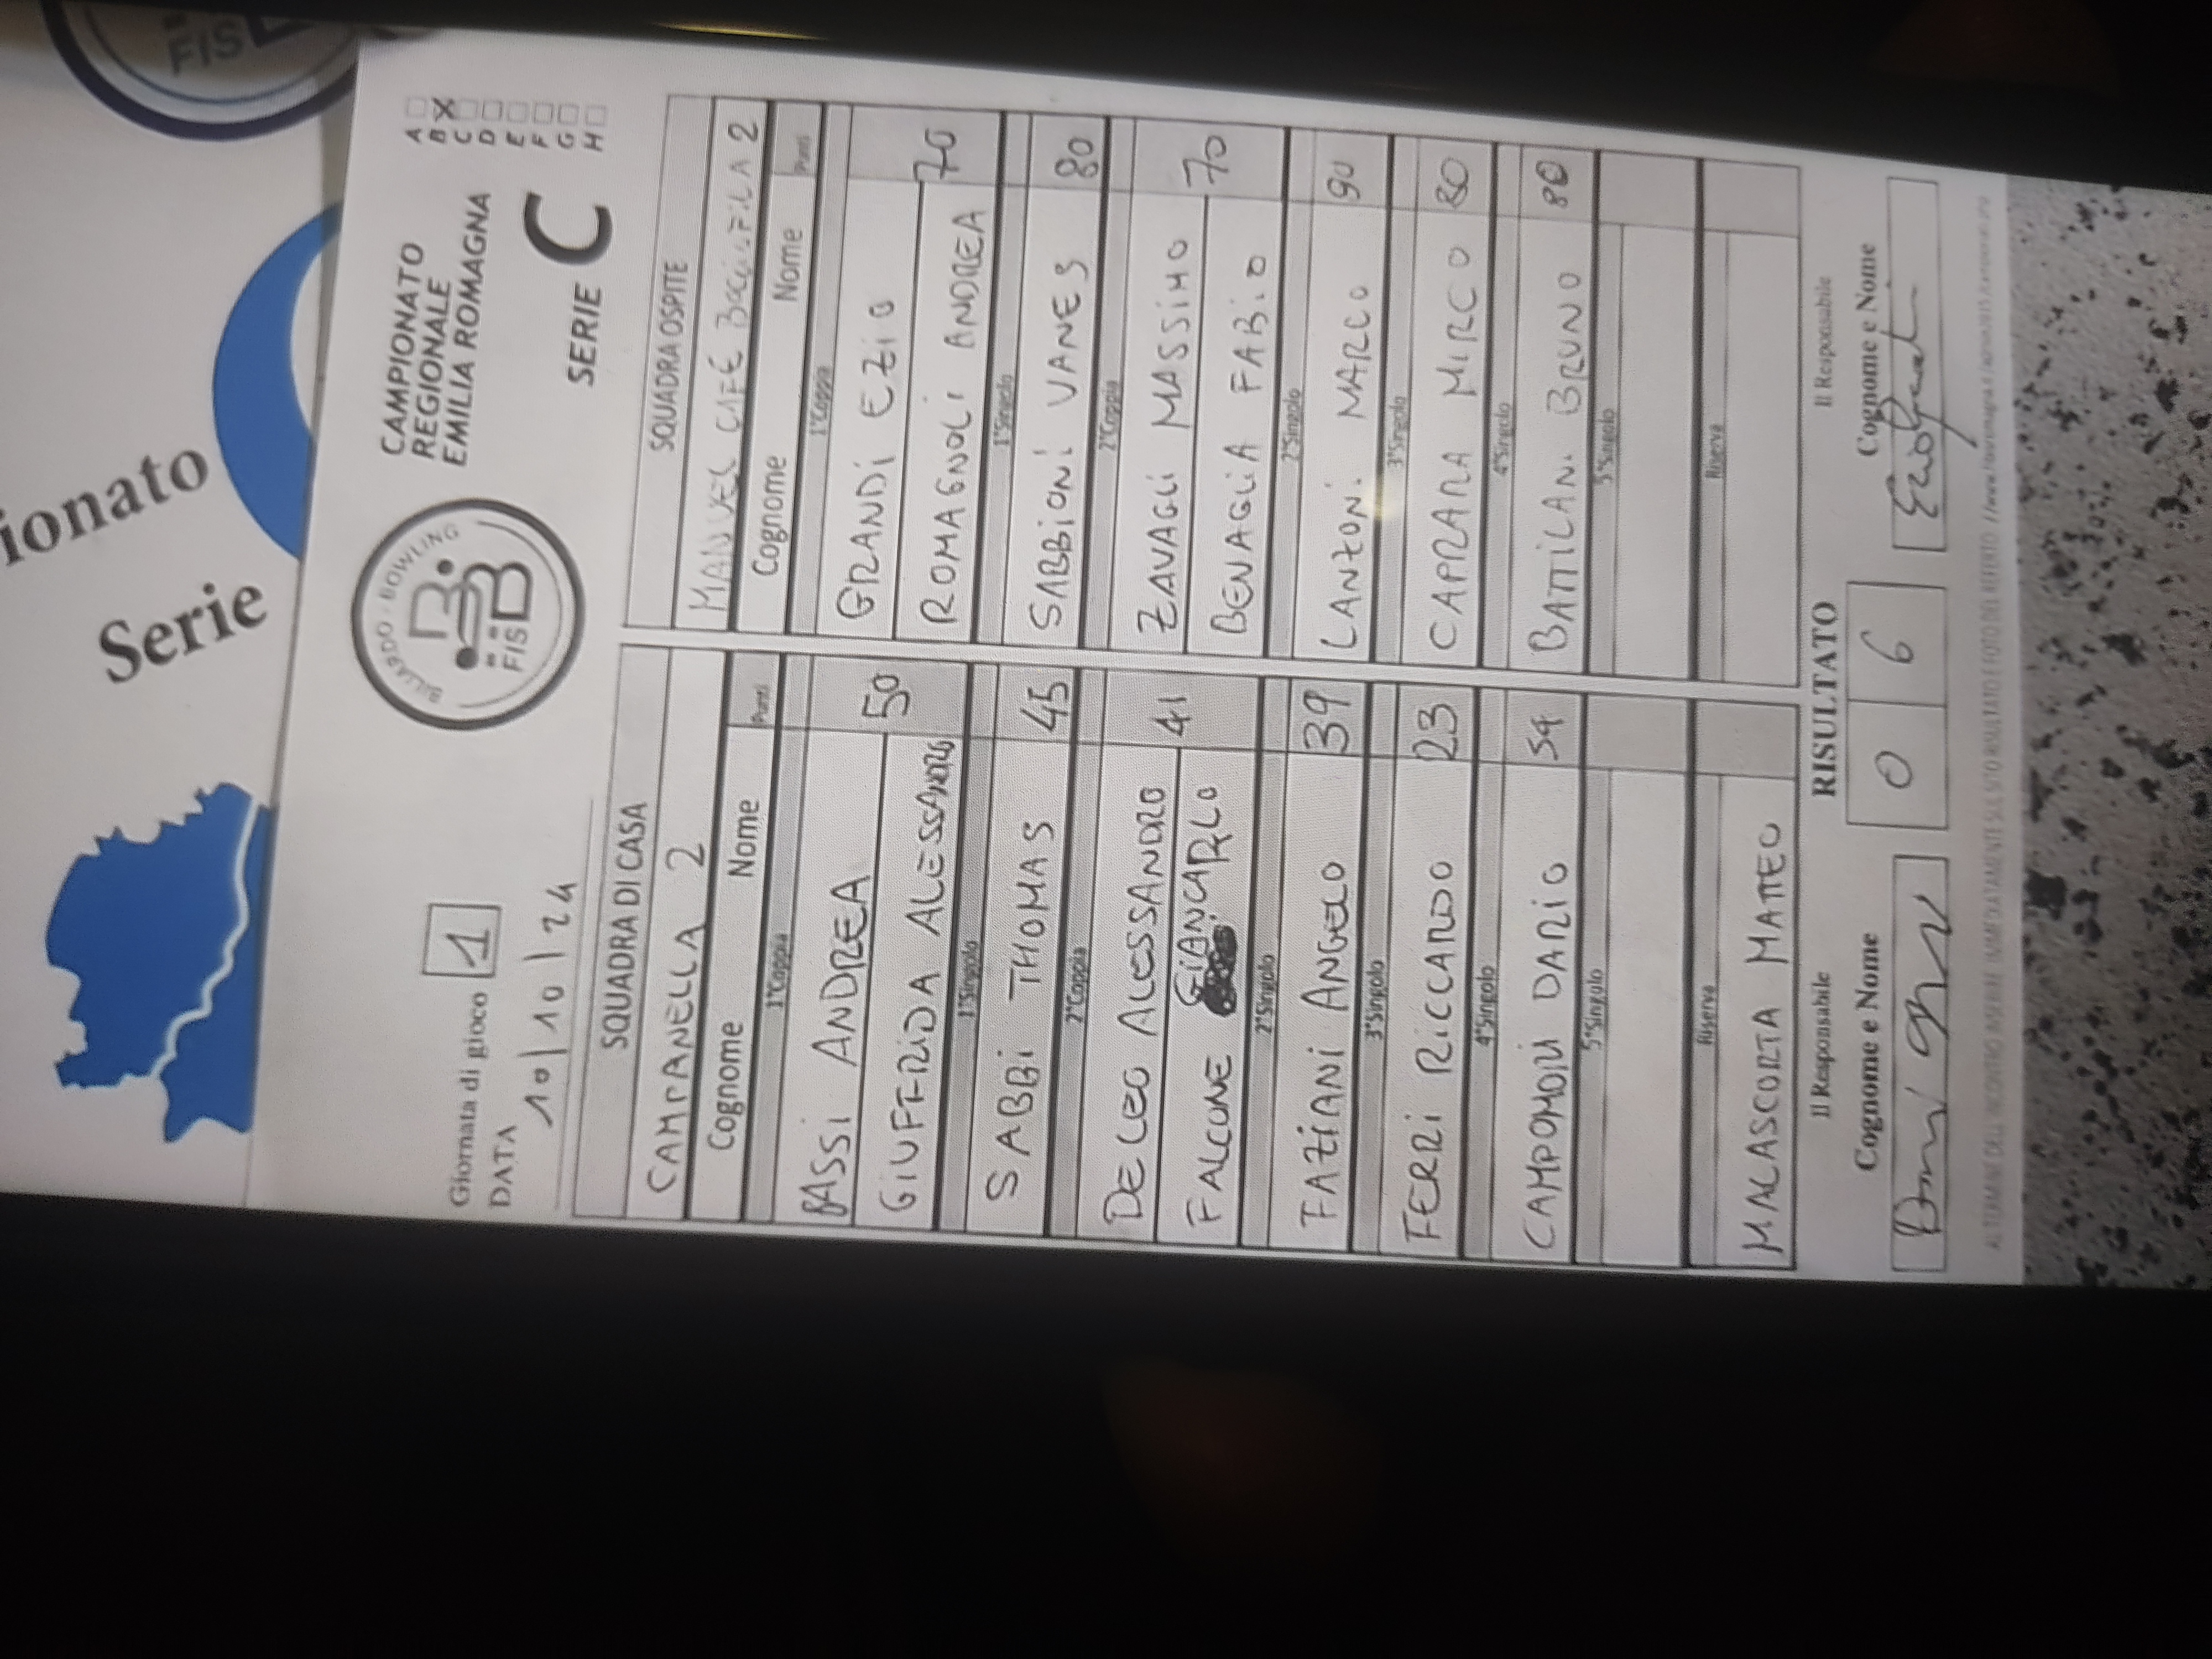 ionato
Serie
FIS
BILIARDO - BOWLING
FISBB
CAMPIONATO
REGIONALE
EMILIA ROMAGNA
SERIE C
A
B X
C
D
E
F
G
H
Giornata di gioco 1
DATA
10/10/24
SQUADRA DI CASA SQUADRA OSPITE
CAMPANELLA 2 MANUEL CAFÉ BOCCIOFILA 2
Cognome Nome Punti Cognome Nome Punti
1°Coppia 1°Coppia
BASSI ANDREA GRANDI EZIO
50 70
GIUFFRIDA ALESSANDRO ROMAGNOLI ANDREA
1°Singolo 1°Singolo
SABBI THOMAS 45 SABBIONI VANES 80
2°Coppia 2°Coppia
DE LEO ALESSANDRO ZAVAGLI MASSIMO
41 70
FALCONE GIANCARLO BENAGLIA FABIO
2°Singolo 2°Singolo
FAZIANI ANGELO 39 LANZONI MARCO 90
3°Singolo 3°Singolo
FERRI RICCARDO 23 CAPRARA MIRCO 80
4°Singolo 4°Singolo
CAMPOMORI DARIO 54 BATTILANI BRUNO 80
5°Singolo 5°Singolo
Riserva Riserva
MALASCORTA MATTEO
Il Responsabile RISULTATO Il Responsabile
Cognome e Nome 0 6 Cognome e Nome